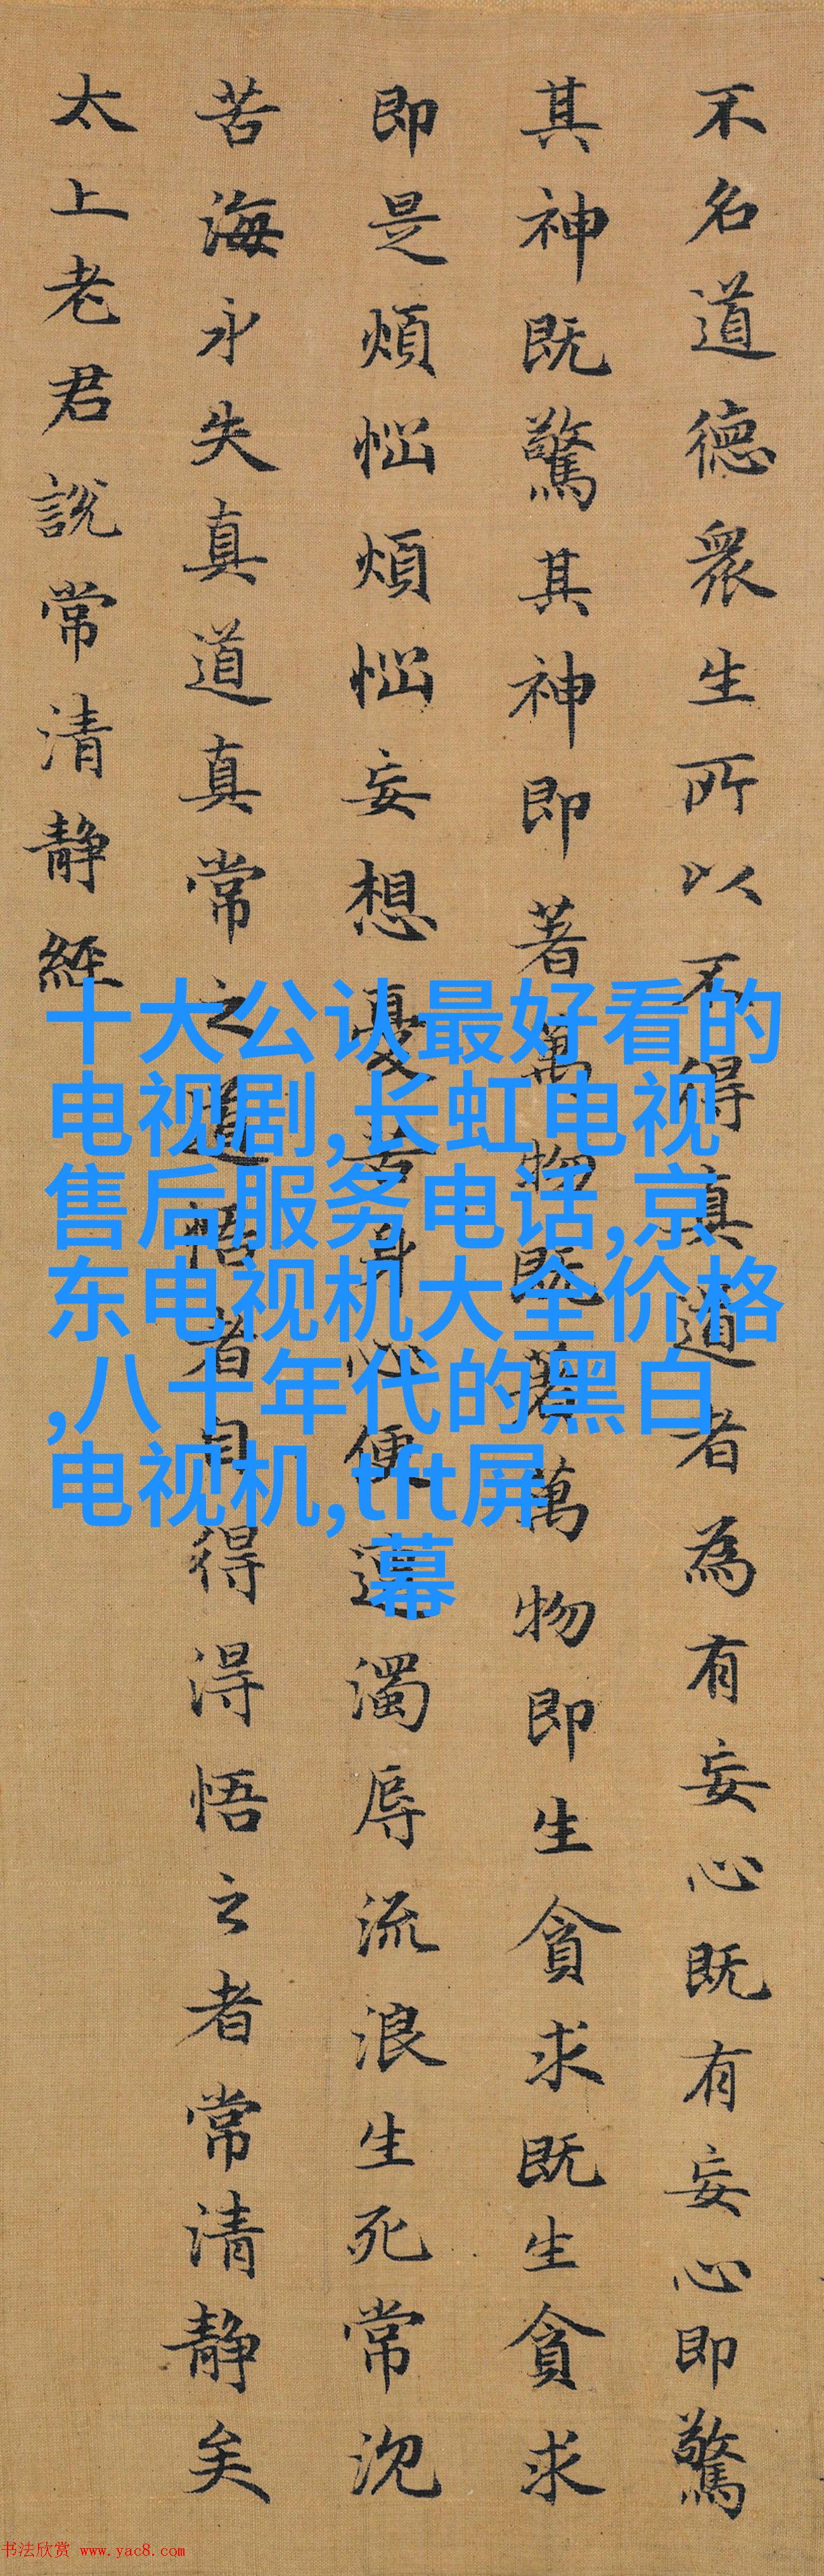 不名道德衆生所以不得真道者為有妄心既有妄心即驚
其神既驚其神即著萬物既著萬物即生貪求既生貪求
即是煩惱煩惱妄想憂苦身心便遭濁辱流浪生死常沉
苦海永失真道真常之道悟者自得得悟之者常清靜矣
太上老君說常清靜經
十大公认最好看的
电视剧,长虹电视
售后服务电话,京
东电视机大全价格
,八十年代的黑白
电视机,tft屏
幕
书法欣赏 www.yac8.com